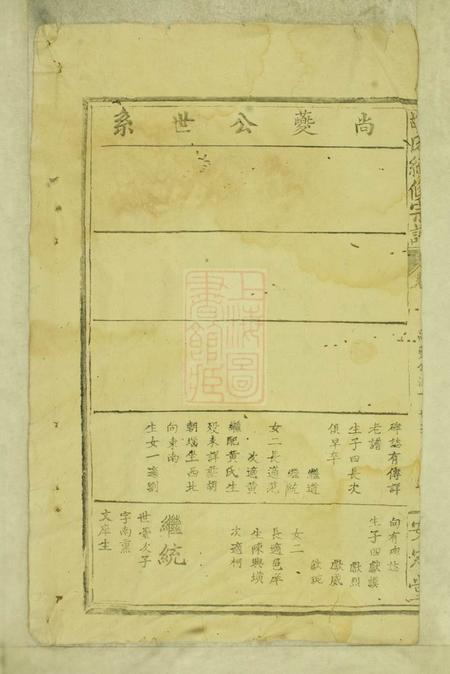 尚夔公世系
碑誌有傳詳
老譜
生子四長次
俱早卒
繼道
繼統
女二長適范
次適黃
繼配黃氏生
歿未詳葬胡
朝塆坐西北
向東南
生女一適劉
向有由誌
生子四獻謨
獻烈
獻威
獻珽
女二
長適邑庠
生陳興璜
次適柯
繼統
世臺次子
字南薰
文庠生
上海圖書館藏